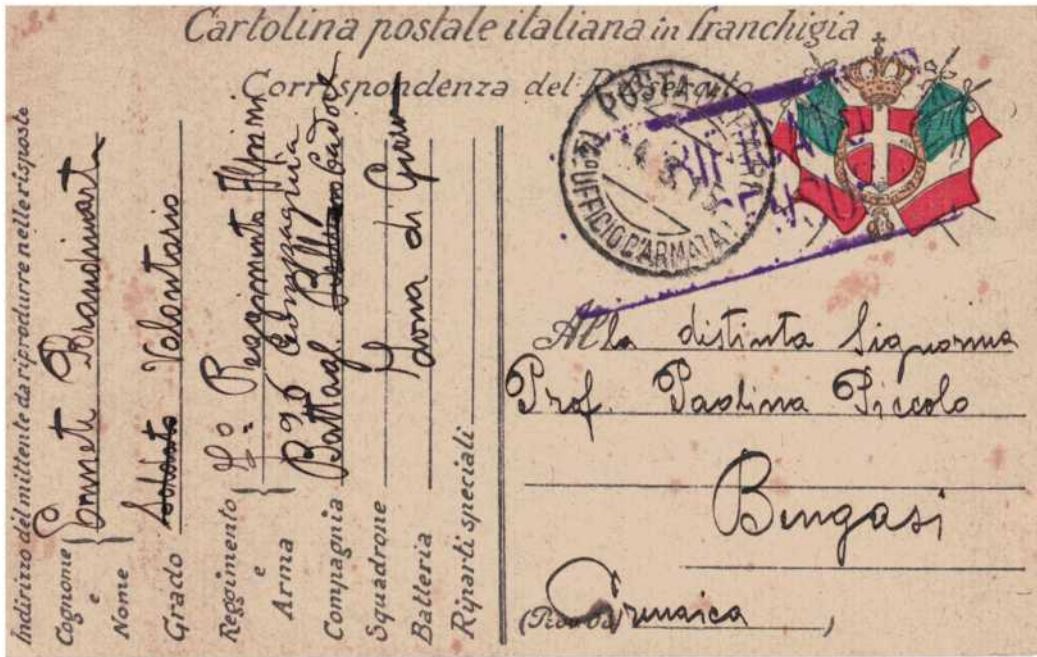 Cartolina postale italiana in franchigia
Corrispondenza del R. Esercito
POSTA MILITARE
12º UFFICIO D'ARMATA
Indirizzo del mittente da riprodurre nelle risposte
Cognome
e
Nome
Brandimarte
Grado Soldato Volontario
Reggimento
e
Arma
7º Reggimento Alpini
Compagnia 
Battagl. Cadore
Squadrone Zona di Guerra
Batteria
Riparti speciali
Alla distinta Signorina
Prof. Paolina Piccolo
Bengasi
Cirenaica